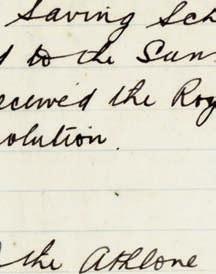 Saving Sch
d to the Sun
eceived the Roy
solution.
the Athlone